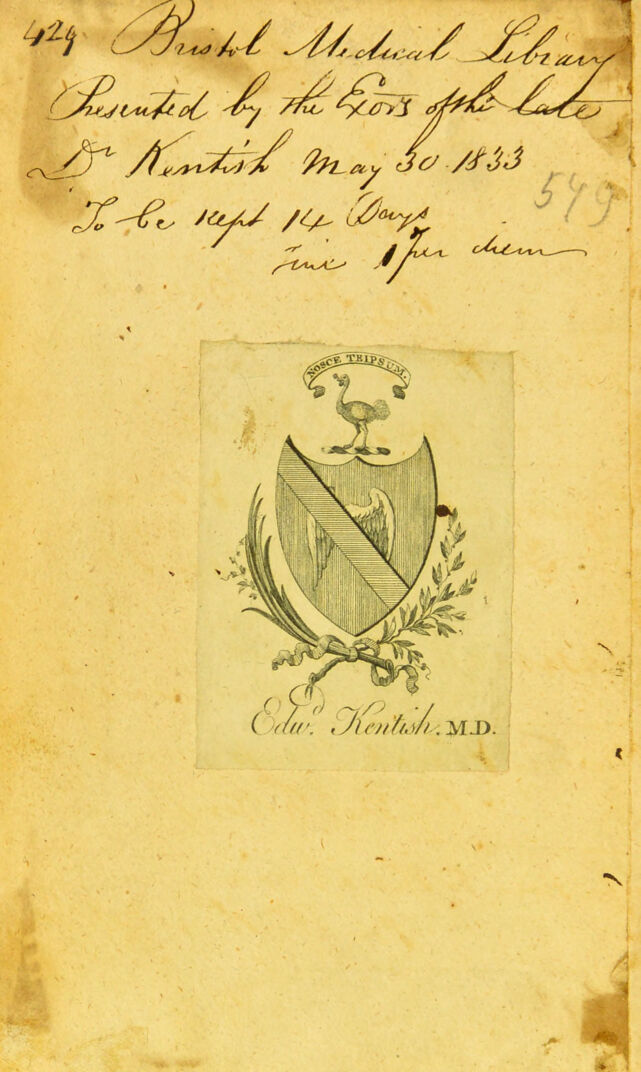 429 Bristol Medical Library
Presented by the Exors of the late
Dr Kentish May 30 1833
549
To be kept 14 Days
Fine 1 per diem
NOSCE TEIPSUM.
Edwd. Kentish. M.D.